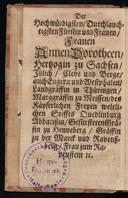 Der
Hochwürdigsten/ Durchlauch-
tigsten Fürstin und Frauen/
Frauen
Annen Dorotheen/
Hertzogin zu Sachsen/
Jülich/ Cleve und Berge/
auch Engern und Westphalen/
Landgräffin in Thüringen/
Marggräffin zu Meissen/ des
Käyserlichen Freyen weltli-
chen Stiffts Quedlinburg
Abbatissin/ Gefürsteten Grä-
fin zu Henneberg/ Gräffin
zu der Marck und Ravens-
berg/ Frau zum Ra-
venstein ꝛc.